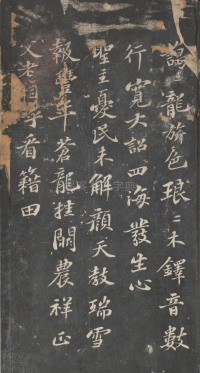 藹藹龍旂色琅琅木鐸音數
行寬大詔四海發生心
聖主憂民未解顏天教瑞雪
報豐年蒼龍挂闕農祥正
父老相呼看籍田